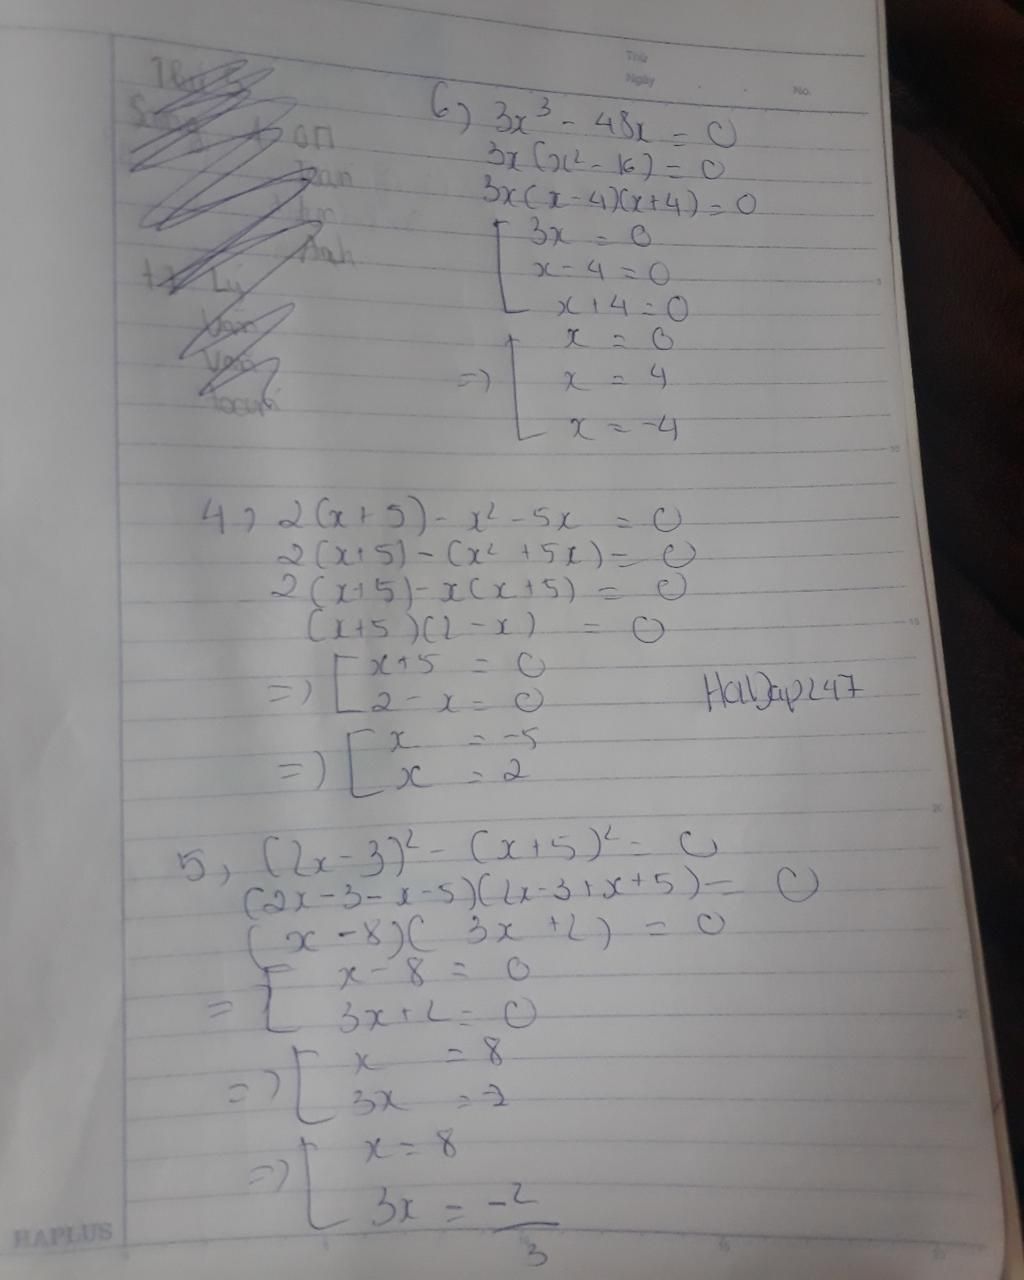 Thứ
Ngày
No.
6) 3x³ - 48x = 0
3x(x² - 16) = 0
3x(x - 4)(x + 4) = 0
3x = 0
x - 4 = 0
x + 4 = 0
x = 0
=> x = 4
x = -4
4, 2(x + 5) - x² - 5x = 0
2(x + 5) - (x² + 5x) = 0
2(x + 5) - x(x + 5) = 0
(x + 5)(2 - x) = 0
=> [ x + 5 = 0
2 - x = 0
HoiDap247
=> [ x = -5
x = 2
5, (2x - 3)² - (x + 5)² = 0
(2x - 3 - x - 5)(2x - 3 + x + 5) = 0
(x - 8)(3x + 2) = 0
= [ x - 8 = 0
3x + 2 = 0
=> [ x = 8
3x = -2
=> [ x = 8
3x = -2/3
HAPLUS